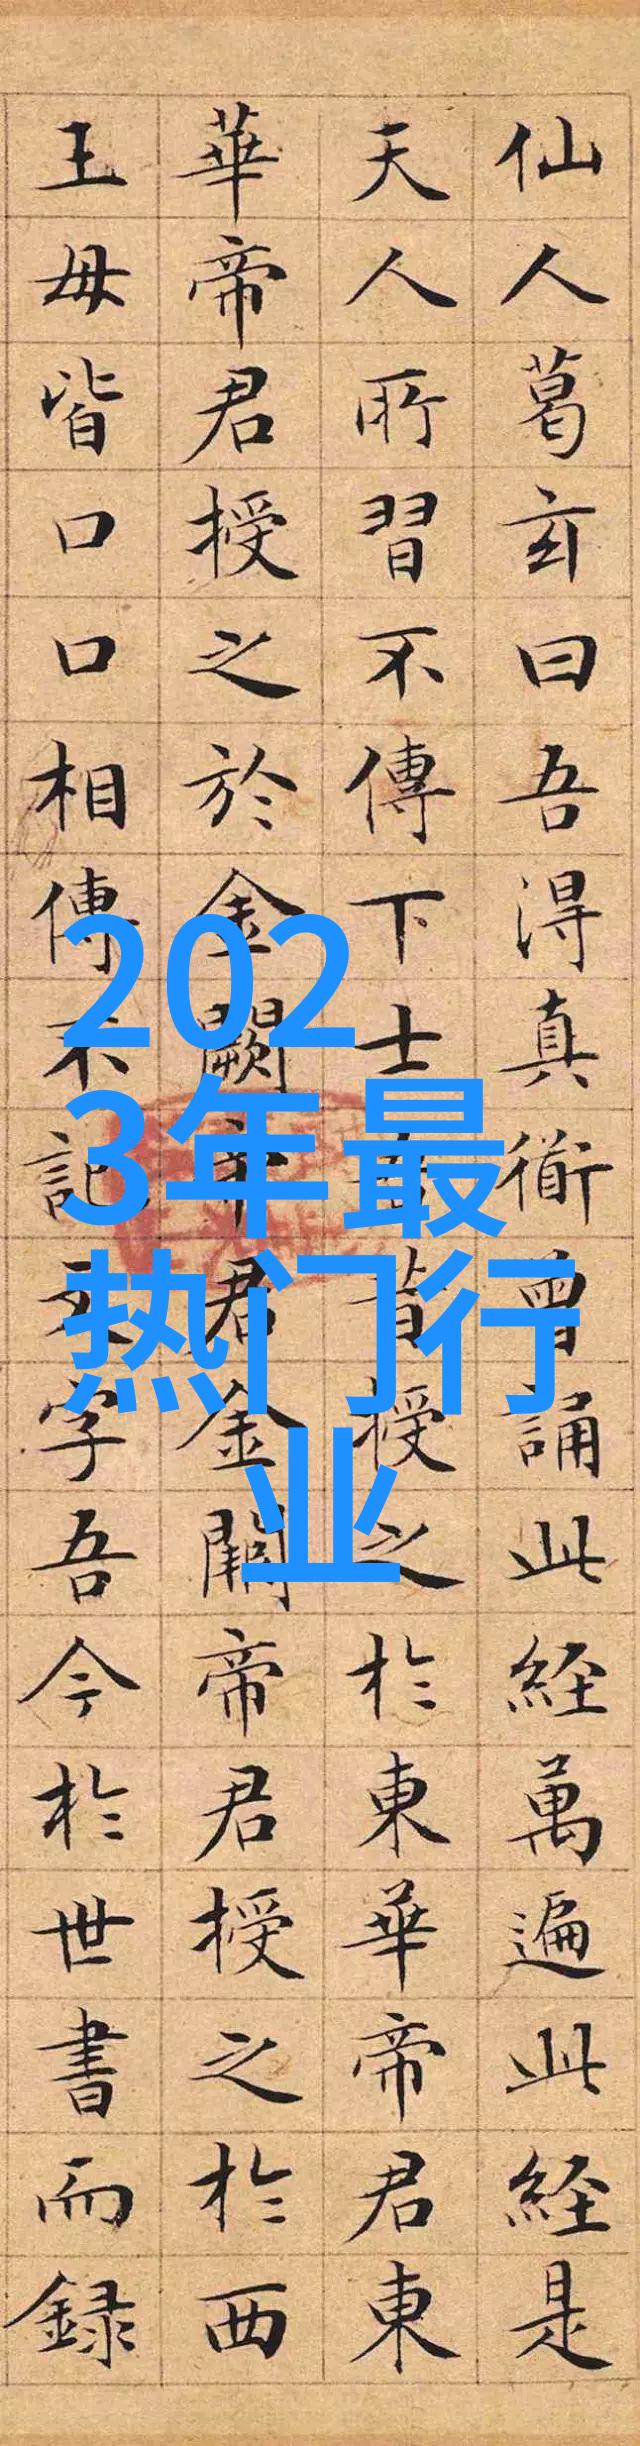 仙人葛玄曰吾淂真衜曾誦此經萬遍此經是
天人所習不傳下士吾昔授之於東華帝君東
華帝君授之於金闕帝君金闕帝君授之於西
王母皆口口相傳不記文字吾今於世書而録
202
3年最
热门行
业